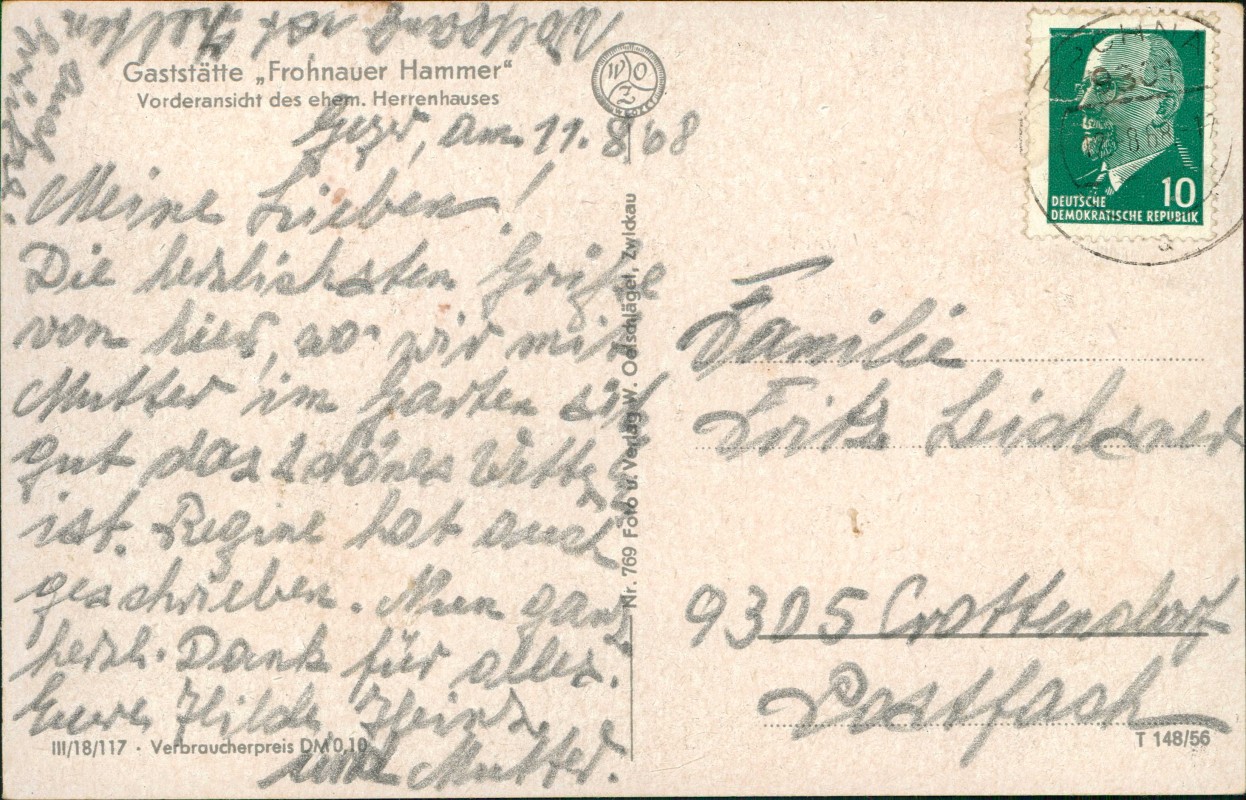 Gaststätte „Frohnauer Hammer"
Vorderansicht des ehem. Herrenhauses
Geyer, am 11.8.68
Meine Lieben!
Die herzlichsten Grüße
von hier, wo wir mit
Mutter im Garten sitzen
gut das schönes Wetter
ist. Regine hat auch
geschrieben. Nun ganz
herzl. Dank für alles.
Eure Hilde, Heinz
und Mutter.
Wolfgang ist Zelten
III/18/117 · Verbraucherpreis DM 0,10
Nr. 769 Foto u. Verlag W. Oelschlägel, Zwickau
WOZ
DEUTSCHE
DEMOKRATISCHE REPUBLIK
10
9301
Familie
Fritz
9305 Crottendorf
Postfach
T 148/56